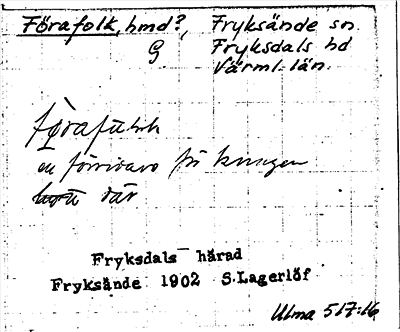 Förafolk, hmd?, Fryksände sn.
G Fryksdals hd
Värml. län.
en förridare för kungen
där
Fryksdals härad
Fryksände 1902 S.Lagerlöf
Ulma 517:16